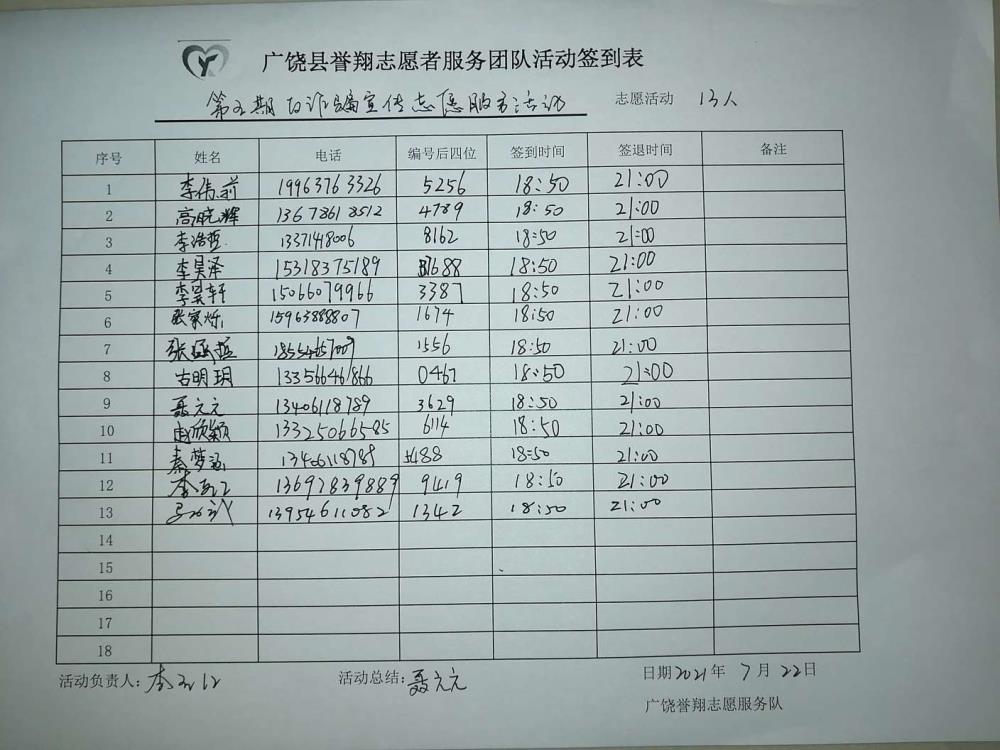 广饶县誉翔志愿者服务团队活动签到表
第五期防诈骗宣传志愿服务活动 志愿活动 13人
序号 姓名 电话 编号后四位 签到时间 签退时间 备注
1 李伟前 19963763326 5256 18:50 21:00
2 高晓辉 13678618512 4789 18:50 21:00
3 李浩哲 13371418006 8162 18:50 21:00
4 李昊泽 15318375189 1688 18:50 21:00
5 李昊轩 15066079966 3387 18:50 21:00
6 张家烁 15963888807 1674 18:50 21:00
7 张 18554657009 1556 18:50 21:00
8 古明玥 13356646866 0467 18:50 21:00
9 聂元元 13406118789 3629 18:50 21:00
10 赵欣颖 13325066585 6114 18:50 21:00
11 秦梦 13406118789 488 18:50 21:00
12 李 13697839889 9419 18:50 21:00
13 13954611082 1342 18:50 21:00
14
15
16
17
18
活动负责人:李 活动总结:聂元元 日期2021年7月22日
广饶誉翔志愿服务队